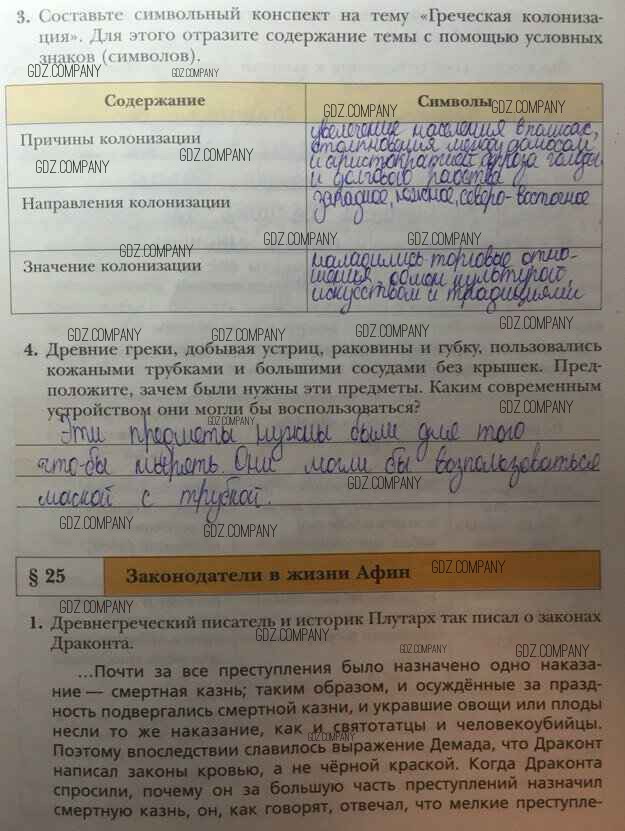 3. Составьте символьный конспект на тему «Греческая колониза-
ция». Для этого отразите содержание темы с помощью условных
знаков (символов).
GDZ.COMPANY
GDZ.COMPANY
Содержание
Символы
GDZ.COMPANY
GDZ.COMPANY
Причины колонизации
увеличение населения в полисах,
столкновения между демосом
и аристократией, угроза голода
и долгового рабства
GDZ.COMPANY
GDZ.COMPANY
Направления колонизации
западное, южное, северо-восточное
GDZ.COMPANY
GDZ.COMPANY
GDZ.COMPANY
Значение колонизации
наладились торговые отно-
шения, обмен культурой,
искусством и традициями
GDZ.COMPANY
GDZ.COMPANY
GDZ.COMPANY
4. Древние греки, добывая устриц, раковины и губку, пользовались
кожаными трубками и большими сосудами без крышек. Пред-
положите, зачем были нужны эти предметы. Каким современным
устройством они могли бы воспользоваться?
GDZ.COMPANY
GDZ.COMPANY
GDZ.COMPANY
Эти предметы нужны были для того
что-бы нырять. Они могли бы возпользоваться
маской с трубкой.
GDZ.COMPANY
GDZ.COMPANY
GDZ.COMPANY
GDZ.COMPANY
GDZ.COMPANY
§ 25 Законодатели в жизни Афин
GDZ.COMPANY
GDZ.COMPANY
1. Древнегреческий писатель и историк Плутарх так писал о законах
Драконта.
GDZ.COMPANY
GDZ.COMPANY
GDZ.COMPANY
...Почти за все преступления было назначено одно наказа-
ние — смертная казнь; таким образом, и осуждённые за празд-
ность подвергались смертной казни, и укравшие овощи или плоды
несли то же наказание, как и святотатцы и человекоубийцы.
GDZ.COMPANY
Поэтому впоследствии славилось выражение Демада, что Драконт
написал законы кровью, а не чёрной краской. Когда Драконта
спросили, почему он за большую часть преступлений назначил
смертную казнь, он, как говорят, отвечал, что мелкие преступле-